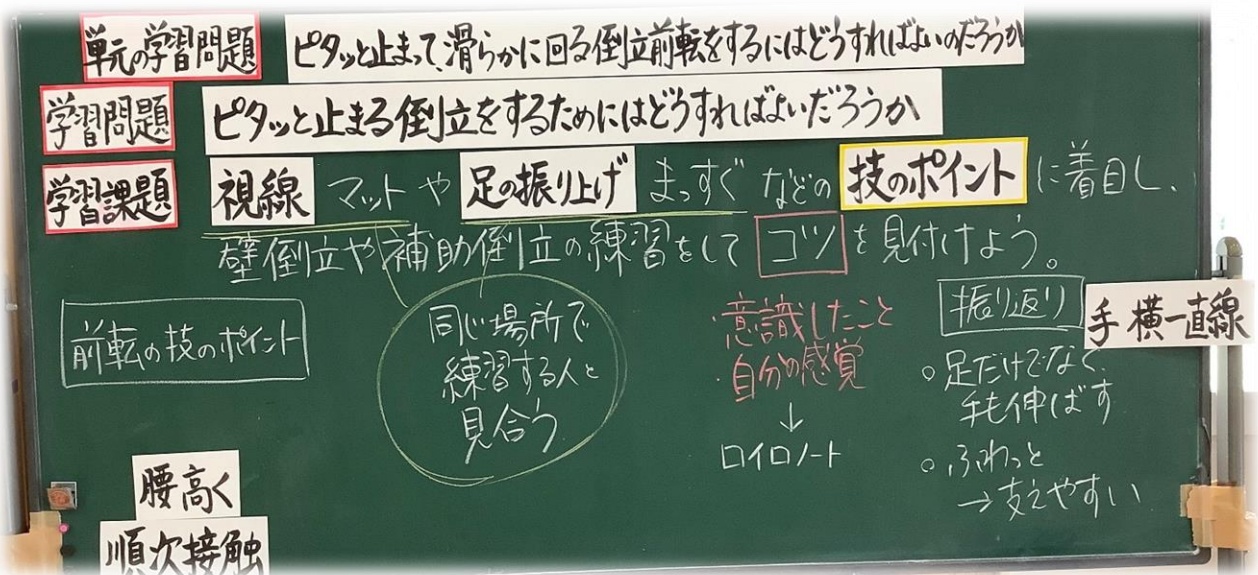 単元の学習問題 ピタッと止まって、滑らかに回る倒立前転をするにはどうすればよいのだろうか
学習問題 ピタッと止まる倒立をするためにはどうすればよいだろうか
学習課題 視線 マットや 足の振り上げ まっすぐ などの 技のポイント に着目し、
壁倒立や補助倒立の練習をして コツ を見付けよう。
前転の技のポイント
腰高く
順次接触
同じ場所で
練習する人と
見合う
・意識したこと
・自分の感覚
↓
ロイロノート
振り返り
手 横一直線
○足だけでなく、
手も伸ばす
○ふわっと
→支えやすい